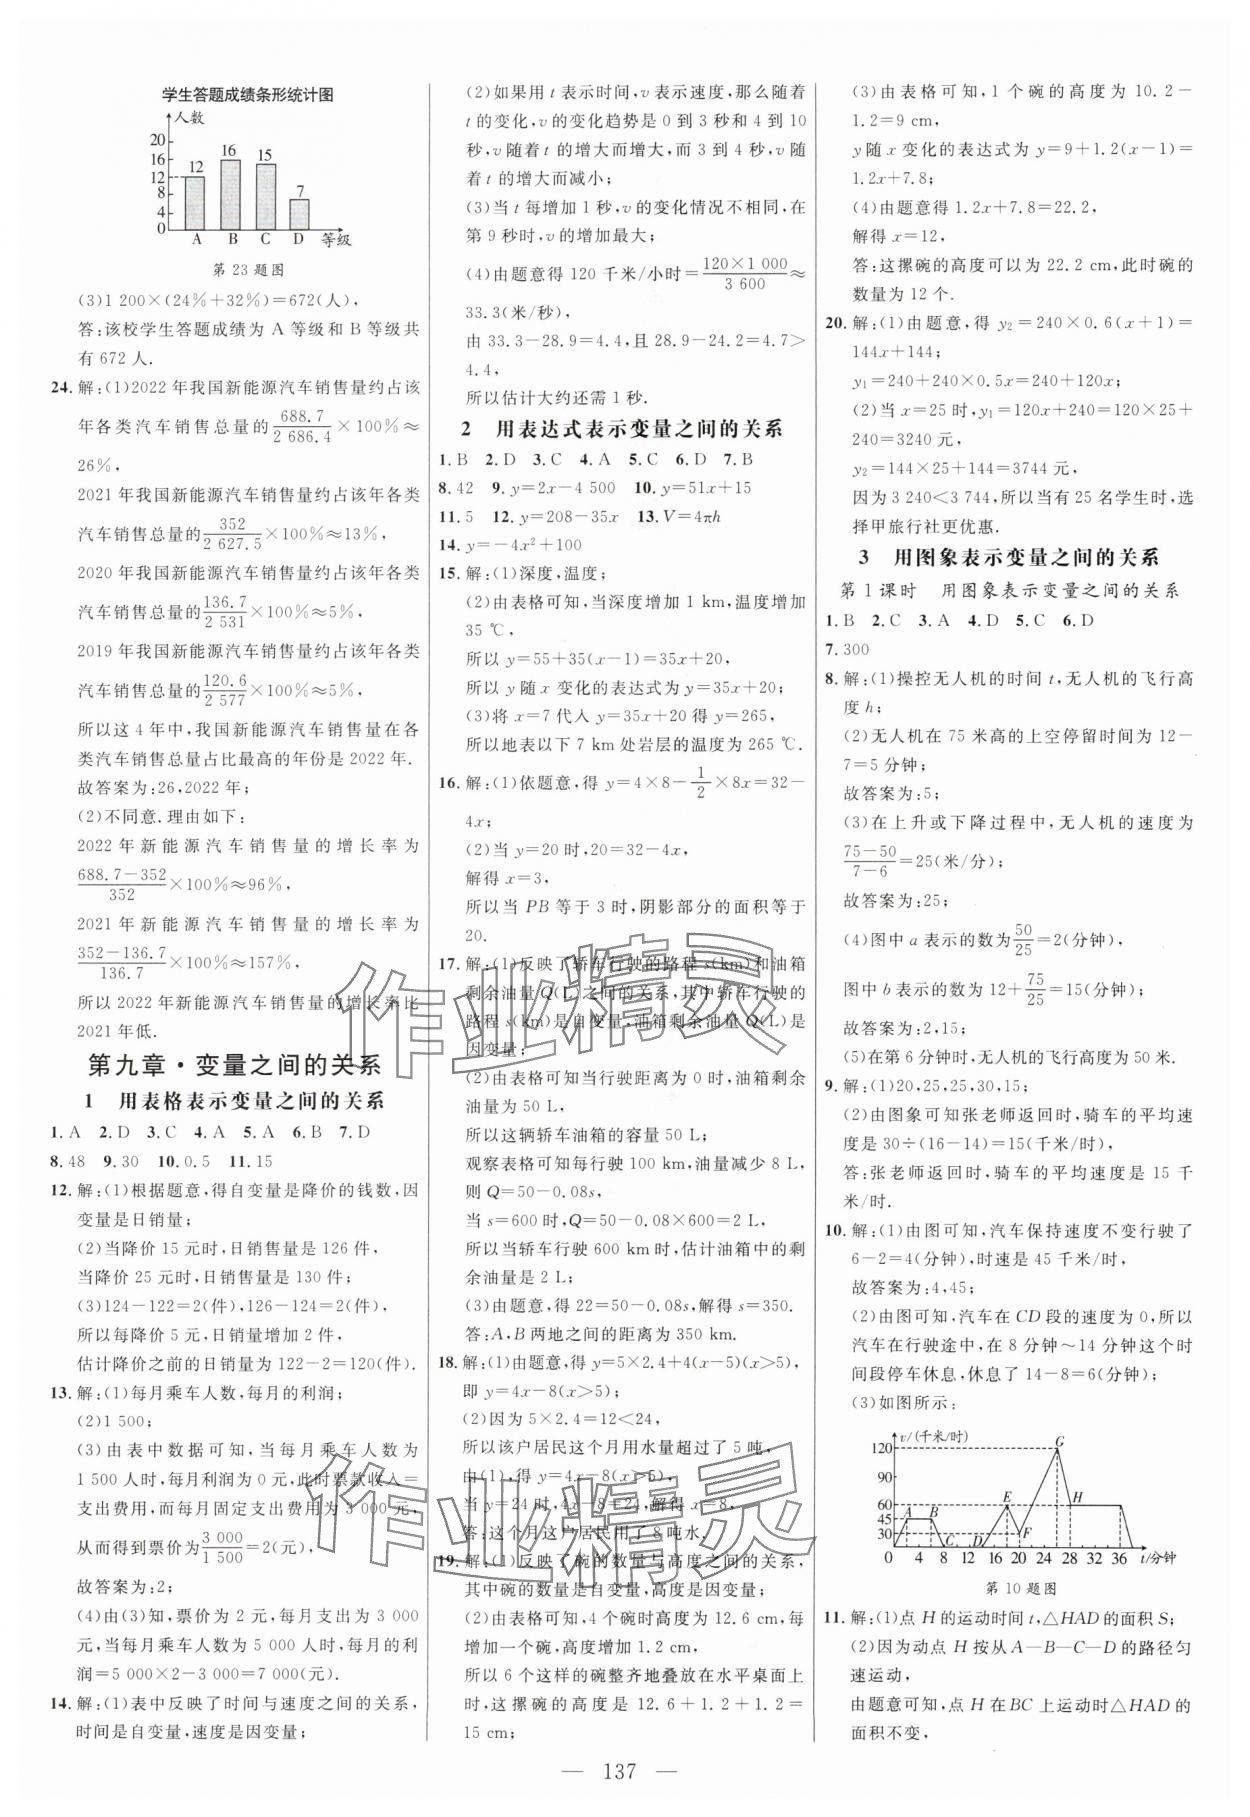 学生答题成绩条形统计图
人数
20
16
12
8
4
0
12 16 15 7
A B C D 等级
第 23 题图
(3)1 200×(24%+32%)=672(人),
答:该校学生答题成绩为 A 等级和 B 等级共
有 672 人.
24. 解:(1)2022 年我国新能源汽车销售量约占该
年各类汽车销售总量的688.7/2 686.4×100%≈
26%,
2021 年我国新能源汽车销售量约占该年各类
汽车销售总量的352/2 627.5×100%≈13%,
2020 年我国新能源汽车销售量约占该年各类
汽车销售总量的136.7/2 531×100%≈5%,
2019 年我国新能源汽车销售量约占该年各类
汽车销售总量的120.6/2 577×100%≈5%,
所以这 4 年中,我国新能源汽车销售量在各
类汽车销售总量占比最高的年份是 2022 年.
故答案为:26,2022 年;
(2)不同意.理由如下:
2022 年新能源汽车销售量的增长率为
688.7-352/352×100%≈96%,
2021 年新能源汽车销售量的增长率为
352-136.7/136.7×100%≈157%,
所以 2022 年新能源汽车销售量的增长率比
2021 年低.
第九章·变量之间的关系
1 用表格表示变量之间的关系
1. A 2. D 3. C 4. A 5. A 6. B 7. D
8. 48 9. 30 10. 0.5 11. 15
12. 解:(1)根据题意,得自变量是降价的钱数,因
变量是日销量;
(2)当降价 15 元时,日销售量是 126 件,
当降价 25 元时,日销售量是 130 件;
(3)124-122=2(件),126-124=2(件),
所以每降价 5 元,日销量增加 2 件,
估计降价之前的日销量为 122-2=120(件).
13. 解:(1)每月乘车人数,每月的利润;
(2)1 500;
(3)由表中数据可知,当每月乘车人数为
1 500 人时,每月利润为 0 元,此时票款收入=
支出费用,而每月固定支出费用为 3 000 元,
从而得到票价为3 000/1 500=2(元),
故答案为:2;
(4)由(3)知,票价为 2 元,每月支出为 3 000
元,当每月乘车人数为 5 000 人时,每月的利
润=5 000×2-3 000=7 000(元).
14. 解:(1)表中反映了时间与速度之间的关系,
时间是自变量,速度是因变量;
(2)如果用 t 表示时间,v 表示速度,那么随着
t 的变化,v 的变化趋势是 0 到 3 秒和 4 到 10
秒,v 随着 t 的增大而增大,而 3 到 4 秒,v 随
着 t 的增大而减小;
(3)当 t 每增加 1 秒,v 的变化情况不相同,在
第 9 秒时,v 的增加最大;
(4)由题意得 120 千米/小时=120×1 000/3 600≈
33.3(米/秒),
由 33.3-28.9=4.4,且 28.9-24.2=4.7>
4.4,
所以估计大约还需 1 秒.
2 用表达式表示变量之间的关系
1. B 2. D 3. C 4. A 5. C 6. D 7. B
8. 42 9. y=2x-4 500 10. y=51x+15
11. 5 12. y=208-35x 13. V=4πh
14. y=-4x²+100
15. 解:(1)深度,温度;
(2)由表格可知,当深度增加 1 km,温度增加
35 ℃,
所以 y=55+35(x-1)=35x+20,
所以 y 随 x 变化的表达式为 y=35x+20;
(3)将 x=7 代入 y=35x+20 得 y=265,
所以地表以下 7 km 处岩层的温度为 265 ℃.
16. 解:(1)依题意,得 y=4×8-1/2×8x=32-
4x;
(2)当 y=20 时,20=32-4x,
解得 x=3,
所以当 PB 等于 3 时,阴影部分的面积等于
20.
17. 解:(1)反映了轿车行驶的路程 s(km)和油箱
剩余油量 Q(L)之间的关系,其中轿车行驶的
路程 s(km)是自变量,油箱剩余油量 Q(L)是
因变量;
(2)由表格可知当行驶距离为 0 时,油箱剩余
油量为 50 L,
所以这辆轿车油箱的容量 50 L;
观察表格可知每行驶 100 km,油量减少 8 L,
则 Q=50-0.08s,
当 s=600 时,Q=50-0.08×600=2 L,
所以当轿车行驶 600 km 时,估计油箱中的剩
余油量是 2 L;
(3)由题意,得 22=50-0.08s,解得 s=350.
答:A,B 两地之间的距离为 350 km.
18. 解:(1)由题意,得 y=5×2.4+4(x-5)(x>5),
即 y=4x-8(x>5);
(2)因为 5×2.4=12<24,
所以该户居民这个月用水量超过了 5 吨,
由(1),得 y=4x-8(x>5),
当 y=24 时,4x-8=24,解得 x=8,
答:这个月这户居民用了 8 吨水.
19. 解:(1)反映了碗的数量与高度之间的关系,
其中碗的数量是自变量,高度是因变量;
(2)由表格可知,4 个碗时高度为 12.6 cm,每
增加一个碗,高度增加 1.2 cm,
所以 6 个这样的碗整齐地叠放在水平桌面上
时,这摞碗的高度是 12.6+1.2+1.2=
15 cm;
(3)由表格可知,1 个碗的高度为 10.2-
1.2=9 cm,
y 随 x 变化的表达式为 y=9+1.2(x-1)=
1.2x+7.8;
(4)由题意得 1.2x+7.8=22.2,
解得 x=12,
答:这摞碗的高度可以为 22.2 cm,此时碗的
数量为 12 个.
20. 解:(1)由题意,得 y₂=240×0.6(x+1)=
144x+144;
y₁=240+240×0.5x=240+120x;
(2)当 x=25 时,y₁=120x+240=120×25+
240=3240 元,
y₂=144×25+144=3744 元,
因为 3 240<3 744,所以当有 25 名学生时,选
择甲旅行社更优惠.
3 用图象表示变量之间的关系
第 1 课时 用图象表示变量之间的关系
1. B 2. C 3. A 4. D 5. C 6. D
7. 300
8. 解:(1)操控无人机的时间 t,无人机的飞行高
度 h;
(2)无人机在 75 米高的上空停留时间为 12-
7=5 分钟;
故答案为:5;
(3)在上升或下降过程中,无人机的速度为
75-50/7-6=25(米/分);
故答案为:25;
(4)图中 a 表示的数为50/25=2(分钟),
图中 b 表示的数为 12+75/25=15(分钟);
故答案为:2,15;
(5)在第 6 分钟时,无人机的飞行高度为 50 米.
9. 解:(1)20,25,25,30,15;
(2)由图象可知张老师返回时,骑车的平均速
度是 30÷(16-14)=15(千米/时),
答:张老师返回时,骑车的平均速度是 15 千
米/时.
10. 解:(1)由图可知,汽车保持速度不变行驶了
6-2=4(分钟),时速是 45 千米/时,
故答案为:4,45;
(2)由图可知,汽车在 CD 段的速度为 0,所以
汽车在行驶途中,在 8 分钟~14 分钟这个时
间段停车休息,休息了 14-8=6(分钟);
(3)如图所示:
v/(千米/时)
120
90
60
45
30
A B C D E F G H
0 4 8 12 16 20 24 28 32 36 t/分钟
第 10 题图
11. 解:(1)点 H 的运动时间 t,△HAD 的面积 S;
(2)因为动点 H 按从A—B—C—D 的路径匀
速运动,
由题意可知,点 H 在 BC 上运动时△HAD 的
面积不变,
— 137 —
作业精灵
作业精灵